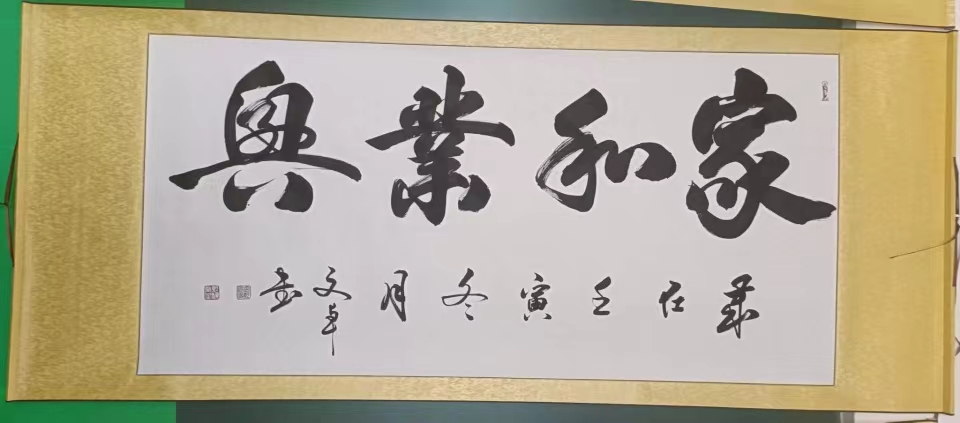 家和業興
歲在壬寅冬月文卓書